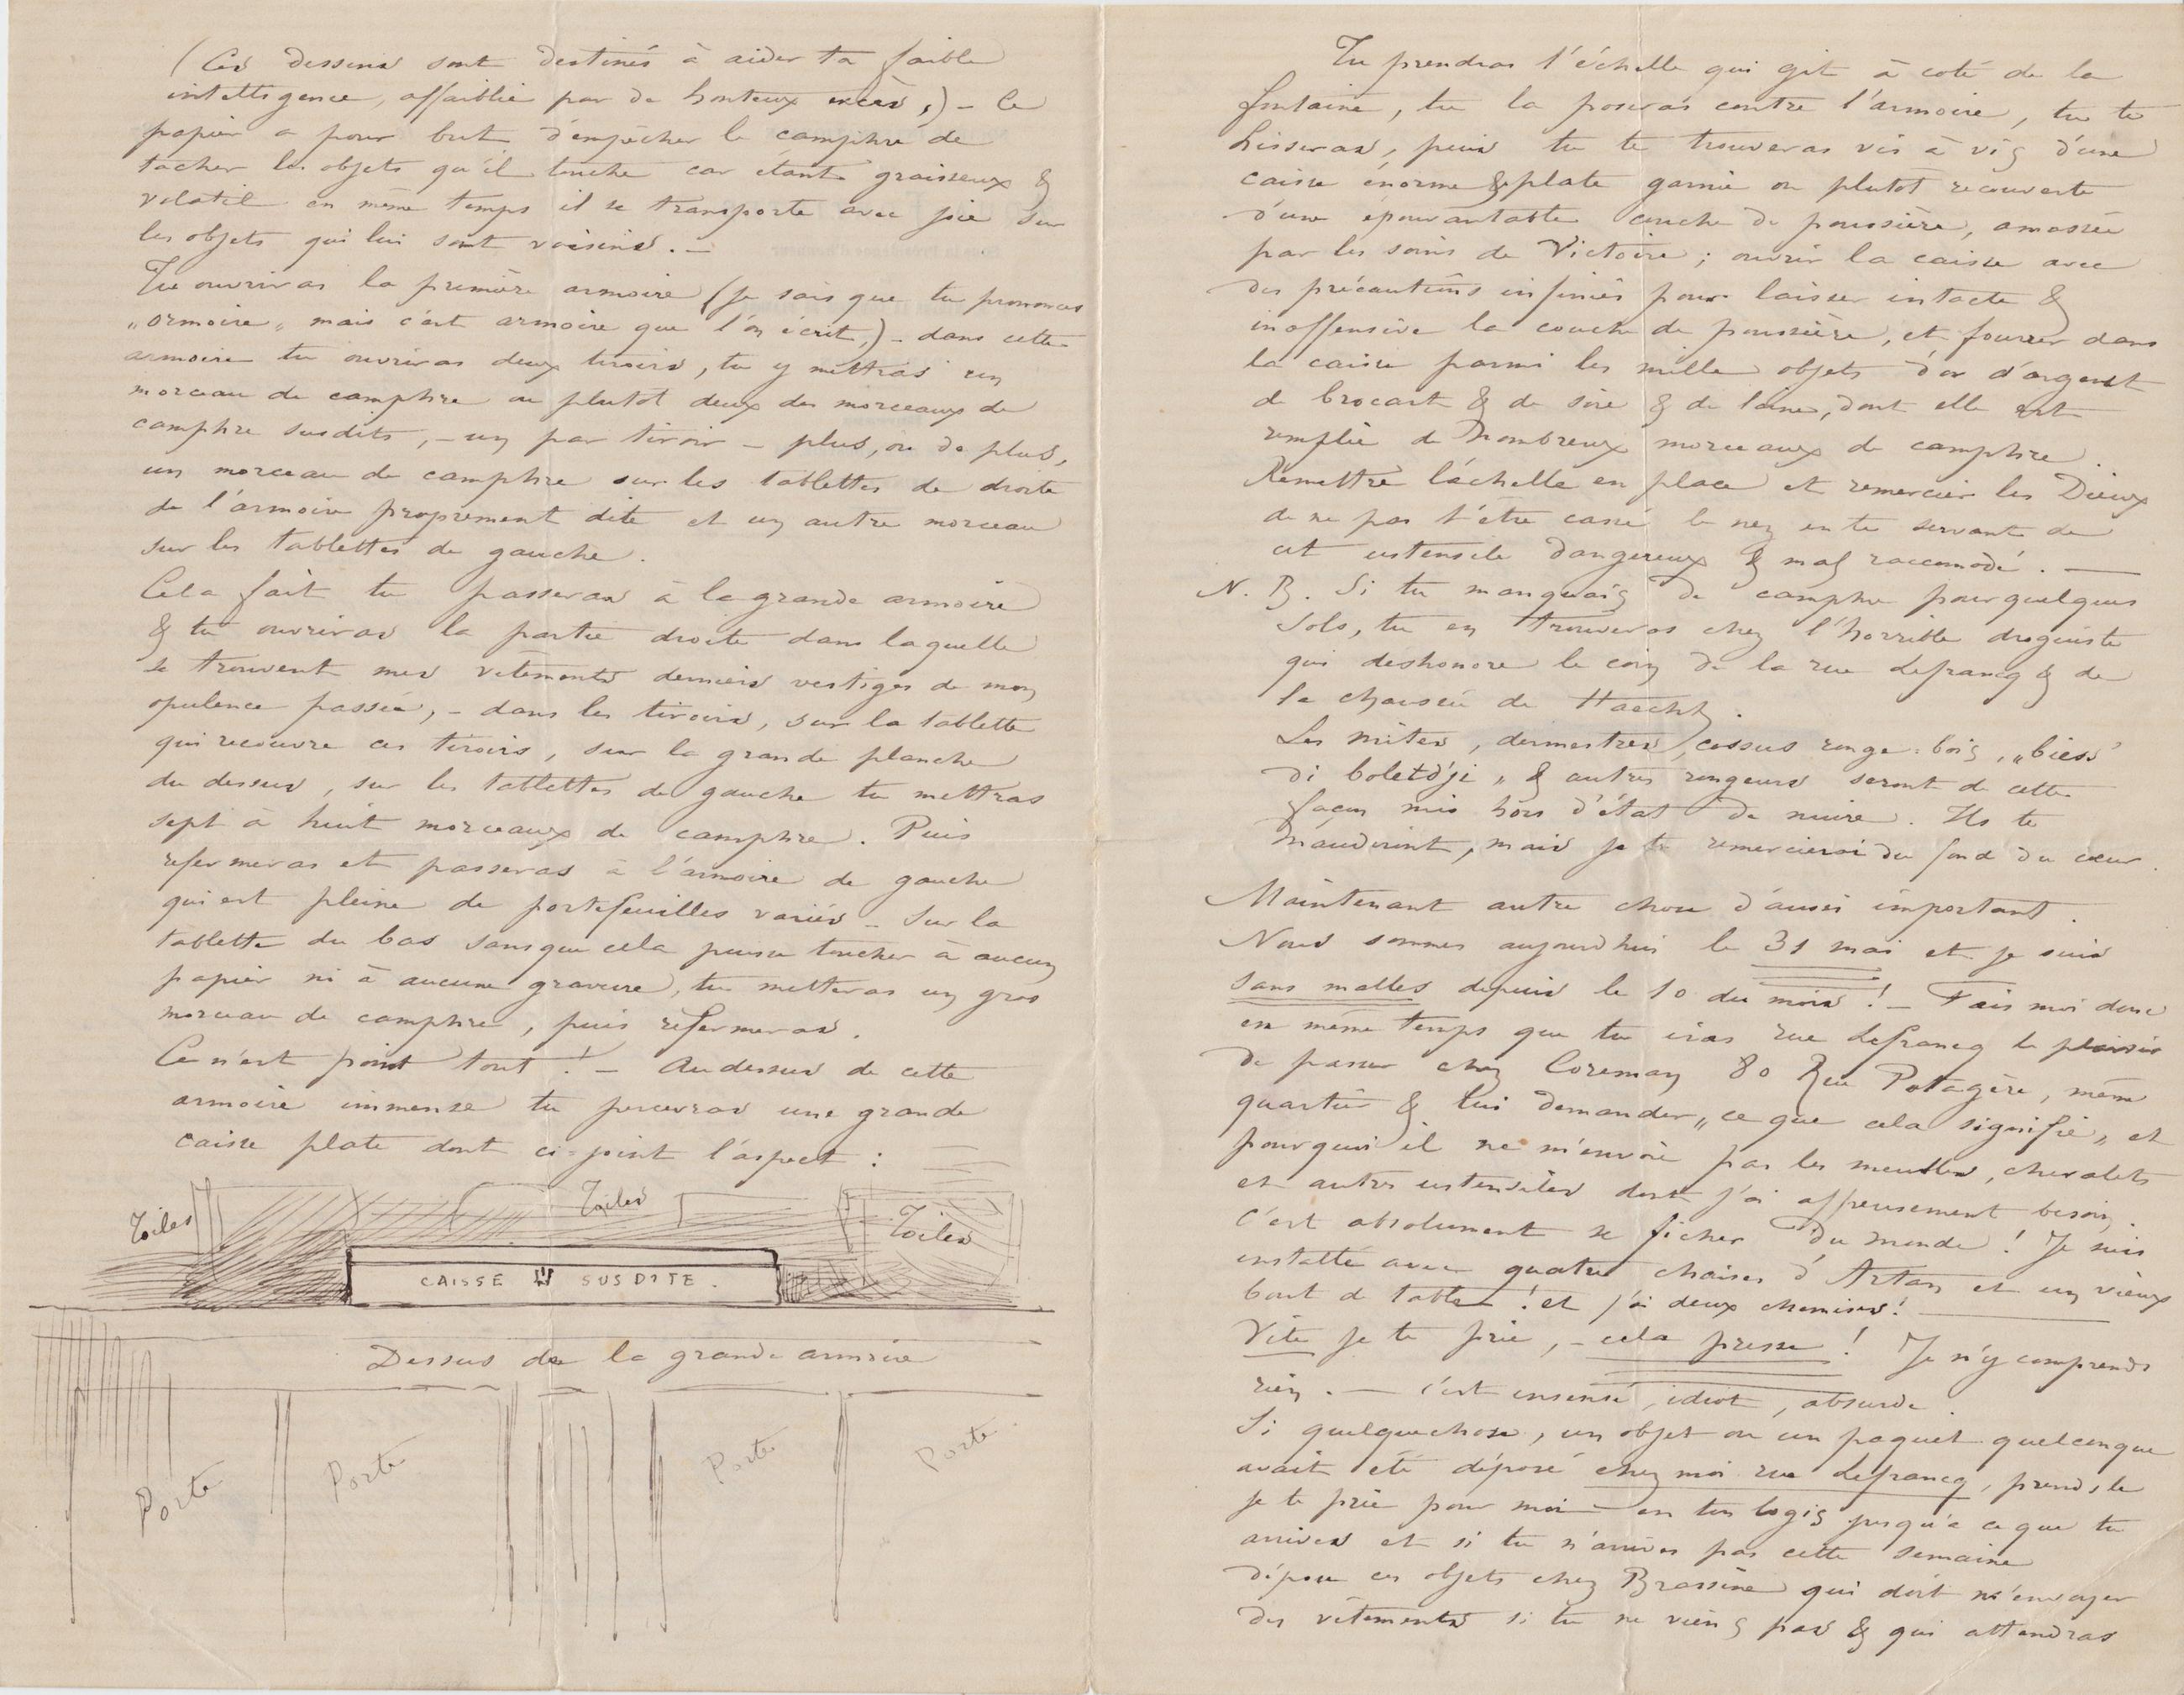 (Ces dessins sont destinés à aider ta faible
intelligence, affaiblie par de honteux excès,) – Ce
papier a pour but d'empêcher le camphre de
tacher les objets qu'il touche car étant graisseux &
volatil en même temps il se transporte avec joie sur
les objets qui lui sont voisins. –
Tu ouvriras la première armoire (je sais que tu prononces
„ormoire„ mais c'est armoire que l'on écrit,) – dans cette
armoire tu ouvriras deux tiroirs, tu y mettras un
morceau de camphre ou plutot deux des morceaux de
camphre susdits, – un par tiroir – plus, ou de plus,
un morceau de camphre sur les tablettes de droite
de l'armoire proprement dite et un autre morceau
sur les tablettes de gauche.
Cela fait tu passeras à la grande armoire
& tu ouvriras la partie droite dans laquelle
se trouvent mes vêtements derniers vestiges de mon
opulence passée, – dans les tiroirs, sur la tablette
qui recouvre ces tiroirs, sur la grande planche
du dessus, sur les tablettes de gauche tu mettras
sept à huit morceaux de camphre. Puis
refermeras et passeras à l'armoire de gauche
qui est pleine de portefeuilles variés – Sur la
tablette du bas sans que cela puisse toucher à aucun
papier ni à aucune gravure, tu metteras un gros
morceau de camphre, puis refermeras.
Ce n'est point tout ! – Au dessus de cette
armoire immense tu percevras une grande
caisse plate dont ci-joint l'aspect :
Toiles
Toiles
Toiles
CAISSE SUSDITE.
Dessus de la grande armoire
Porte
Porte
Porte
Porte.
Tu prendras l'échelle qui git à coté de la
fontaine, tu la poseras contre l'armoire, tu te
hisseras, puis tu te trouveras vis à vis d'une
caisse énorme & plate garnie ou plutot recouverte
d'une épouvantable couche de poussière, amassée
par les soins de Victoire ; ouvrir la caisse avec
des précautions infinies pour laisser intacte &
inoffensive la couche de poussière, et fourrer dans
la caisse parmi les mille objets d'or d'argent
de brocart & de soie & de laine, dont elle est
remplie de nombreux morceaux de camphre.
Remettre l'échelle en place et remercier les Dieux
de ne pas t'être cassé le nez en te servant de
cet ustensile dangereux & mal raccomodé. —
N. B. Si tu manquais de camphre pour quelques
sols, tu en trouveras chez l'horrible droguiste
qui deshonore le coin de la rue Lefrancq & de
la chaussée de Haecht.
Les mites, dermestres, cossus ronge-bois, „biess'
di boletdji „ & autres rongeurs seront de cette
façon mis hors d'état de nuire. Ils te
maudiront, mais je te remercierai du fond du cœur.
Maintenant autre chose d'aussi important.
Nous sommes aujourd'hui le 31 mai et je suis
sans malles depuis le 10 du mois ! – Fais moi donc
en même temps que tu iras rue Lefrancq le plaisir
de passer chez Coreman 80 Rue Potagère, même
quartier & lui demander „ce que cela signifie„ et
pourquoi il ne m'envoie pas les meubles, chevalets
et autres ustensiles dont j'ai affreusement besoin.
C'est absolument se ficher du monde ! Je suis
installé avec quatre chaises d'Artan et un vieux
bout de table ! et j'ai deux chemises ! —
Vite je te prie, – cela presse ! Je n'y comprends
rien. — c'est insensé, idiot, absurde.
Si quelquechose, un objet ou un paquet quelconque
avait été déposé chez moi rue Lefrancq, prends le
je te prie pour moi – en ton logis jusqu'à ce que tu
arrives et si tu n'arrives pas cette semaine
dépose ces objets chez Brassine qui doit m'envoyer
des vêtements si tu ne viens pas & qui attendras